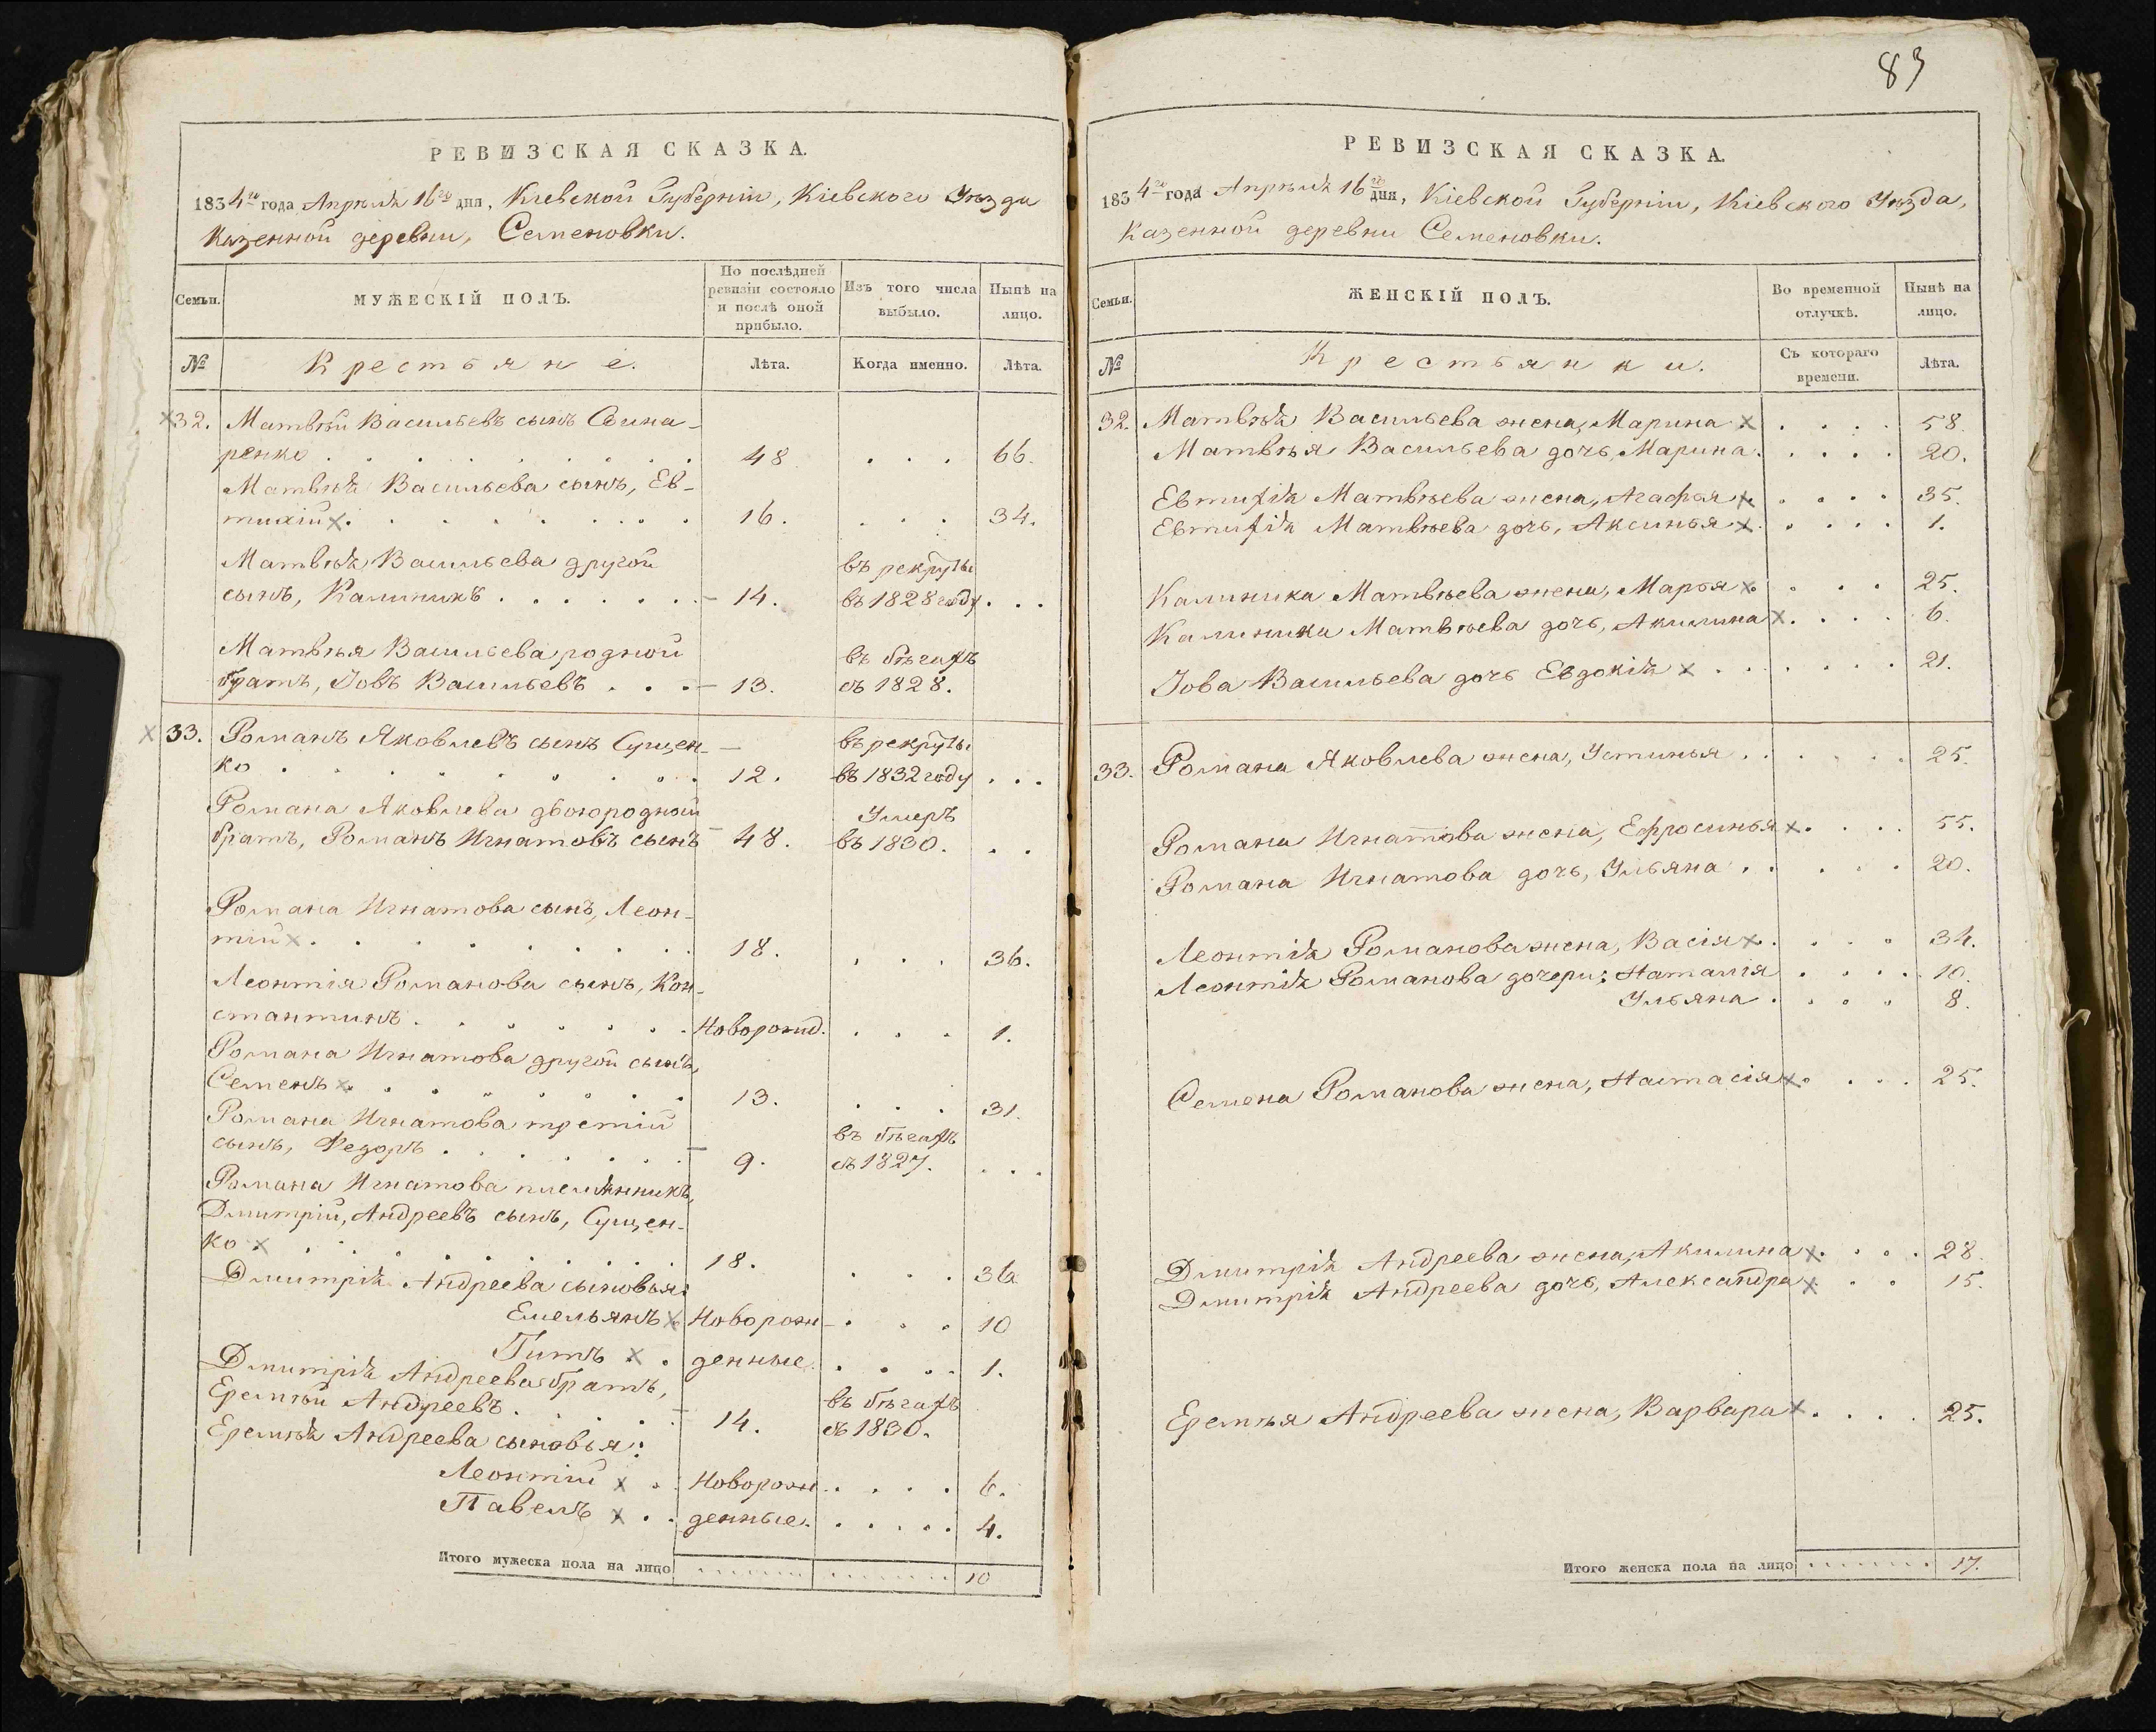 РЕВИЗСКАЯ СКАЗКА.
1834го года Апрѣля 16го дня, Кіевской Губерніи, Кіевского Уѣзда
Казенной деревни, Семеновки.
Семьи.
МУЖЕСКІЙ ПОЛЪ.
По послѣдней
ревизіи состояло
и послѣ оной
прибыло.
Изъ того числа
выбыло.
Нынѣ на
лицо.
№
Крестьяне.
Лѣта.
Когда именно.
Лѣта.
32. Матвѣй Васильевъ сынъ Свина-
ренко 48 66.
Матвѣя Васильева сынъ, Ев-
тихій 16. 34.
Матвѣя Васильева другой въ рекруты
сынъ, Калиникъ 14. въ 1828 году
Матвѣя Васильева родной въ бѣгахъ
братъ, Іовъ Васильевъ 13. съ 1828.
33. Романъ Яковлевъ сынъ Сущен- въ рекруты
ко 12. въ 1832 году
Романа Яковлева двоюродный Умеръ
братъ, Романъ Игнатовъ сынъ 48. въ 1830.
Романа Игнатова сынъ, Леон-
тій 18. 36.
Леонтія Романова сынъ, Кон-
стантинъ Новорожд. 1.
Романа Игнатова другой сынъ,
Семенъ 13. 31.
Романа Игнатова третій въ бѣгахъ
сынъ, Федоръ 9. съ 1827.
Романа Игнатова племянникъ,
Дмитрій, Андреевъ сынъ, Сущен-
ко 18. 36
Дмитрія Андреева сыновья:
Емельянъ Новорож- 10
Титъ денные. 1.
Дмитрія Андреева братъ, въ бѣгахъ
Еремѣй Андреевъ 14. съ 1830.
Еремѣя Андреева сыновья:
Леонтій Новорож- 6.
Павелъ денные. 4.
Итого мужеска пола на лицо 10
83
РЕВИЗСКАЯ СКАЗКА.
1834го года Апрѣля 16го дня, Кіевской Губерніи, Кіевского Уѣзда,
Казенной деревни Семеновки.
Семьи.
ЖЕНСКІЙ ПОЛЪ.
Во временной
отлучкѣ.
Нынѣ на
лицо.
№
Крестьянки.
Съ котораго
времени.
Лѣта.
32. Матвѣя Васильева жена, Марина 58.
Матвѣя Васильева дочь, Марина 20.
Евтихія Матвѣева жена, Агафья 35.
Евтихія Матвѣева дочь, Аксинья 1.
Калиника Матвѣева жена, Марья 25.
Калиника Матвѣева дочь, Акилина 6.
Іова Васильева дочь Евдокія 21.
33. Романа Яковлева жена, Устинья 25.
Романа Игнатова жена, Ефросинья 55.
Романа Игнатова дочь, Ульяна 20.
Леонтія Романова жена, Васія 34.
Леонтія Романова дочери: Наталія 10.
Ульяна 8.
Семена Романова жена, Настасія 25.
Дмитрія Андреева жена, Акилина 28.
Дмитрія Андреева дочь, Александра 15.
Еремѣя Андреева жена, Варвара 25.
Итого женска пола на лицо 17.